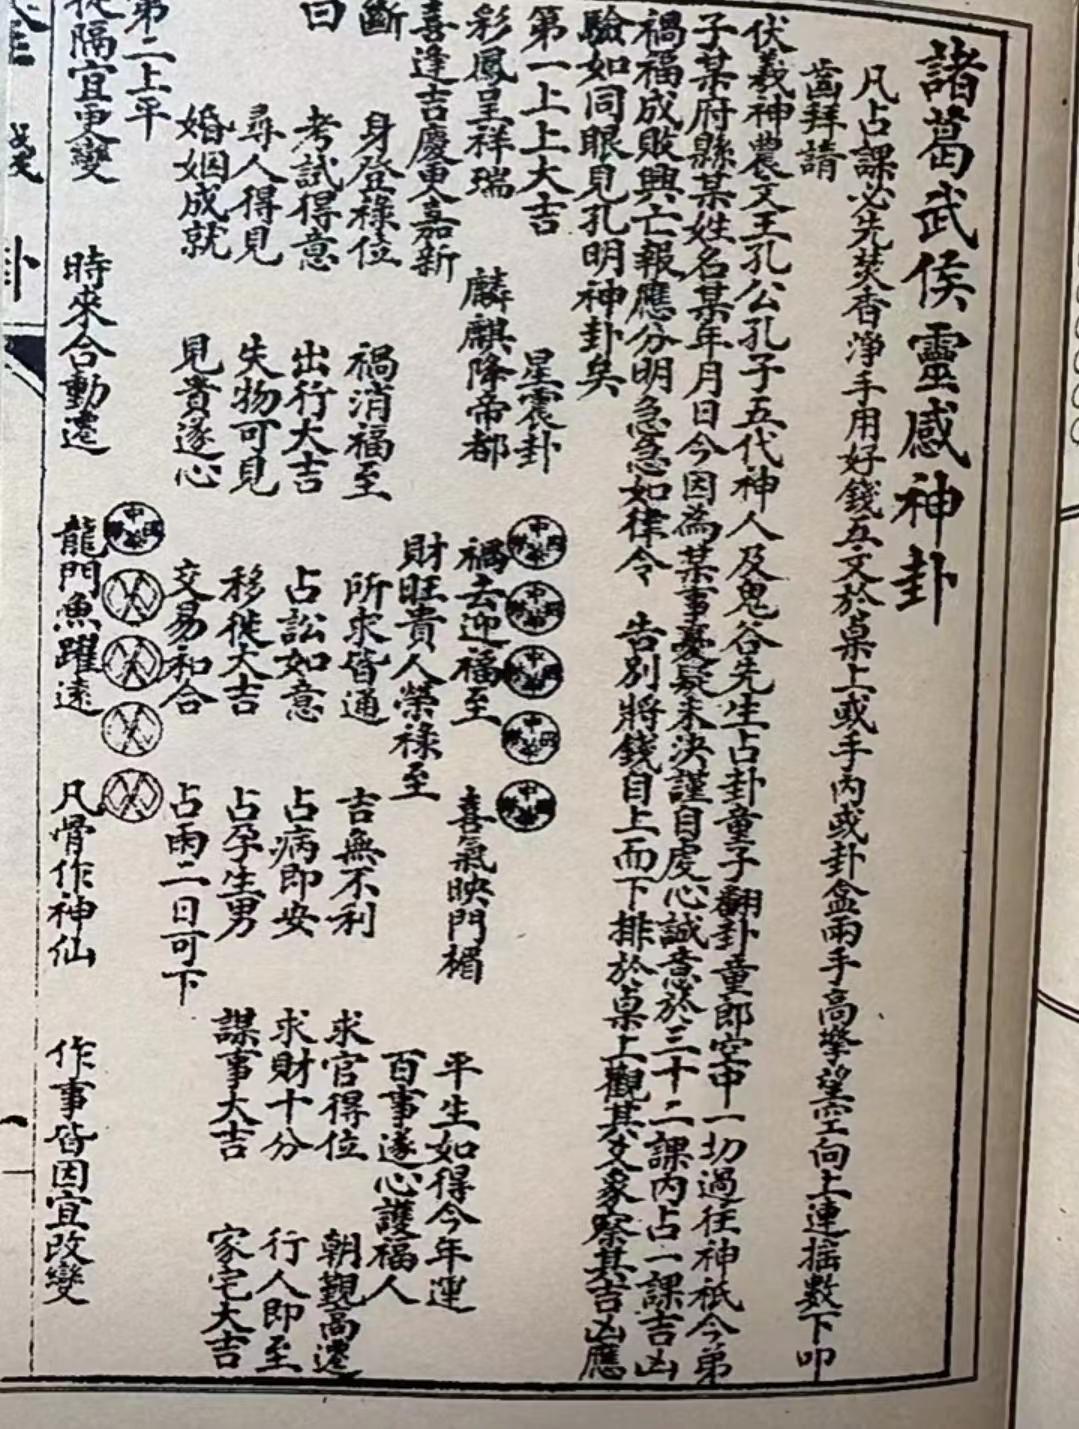 諸葛武侯靈感神卦
凡占課必先焚香淨手用好錢五文於桌上或手內或卦盒兩手高擎望空向上連搖數下叩
齒拜請
伏羲神農文王孔公孔子五代神人及鬼谷先生占卦童子翻卦童郎空中一切過往神祇今弟
子某府縣某姓名某年月日今因為某事憂疑未決謹自虔心誠意於三十二課內占一課吉凶
禍福成敗興亡報應分明急急如律令 告別將錢自上而下排於桌上觀其爻象察其吉凶應
驗如同眼見孔明神卦矣
第一上上大吉 星震卦
彩鳳呈祥瑞 麟麒降帝都 禍去迎福至 喜氣映門楣 平生如得今年運
喜逢吉慶更嘉新 財旺貴人榮祿至 百事遂心護福人
斷 身登祿位 禍消福至 所求皆通 吉無不利 求官得位 朝覲高遷
曰 考試得意 出行大吉 占訟如意 占病即安 求財十分 行人即至
尋人得見 失物可見 移徙大吉 占孕生男 謀事大吉 家宅大吉
婚姻成就 見貴遂心 交易和合 占雨二日可下
第二上平
隔宜更變 時來合動遷 龍門魚躍遠 凡骨作神仙 作事皆因宜改變
卦